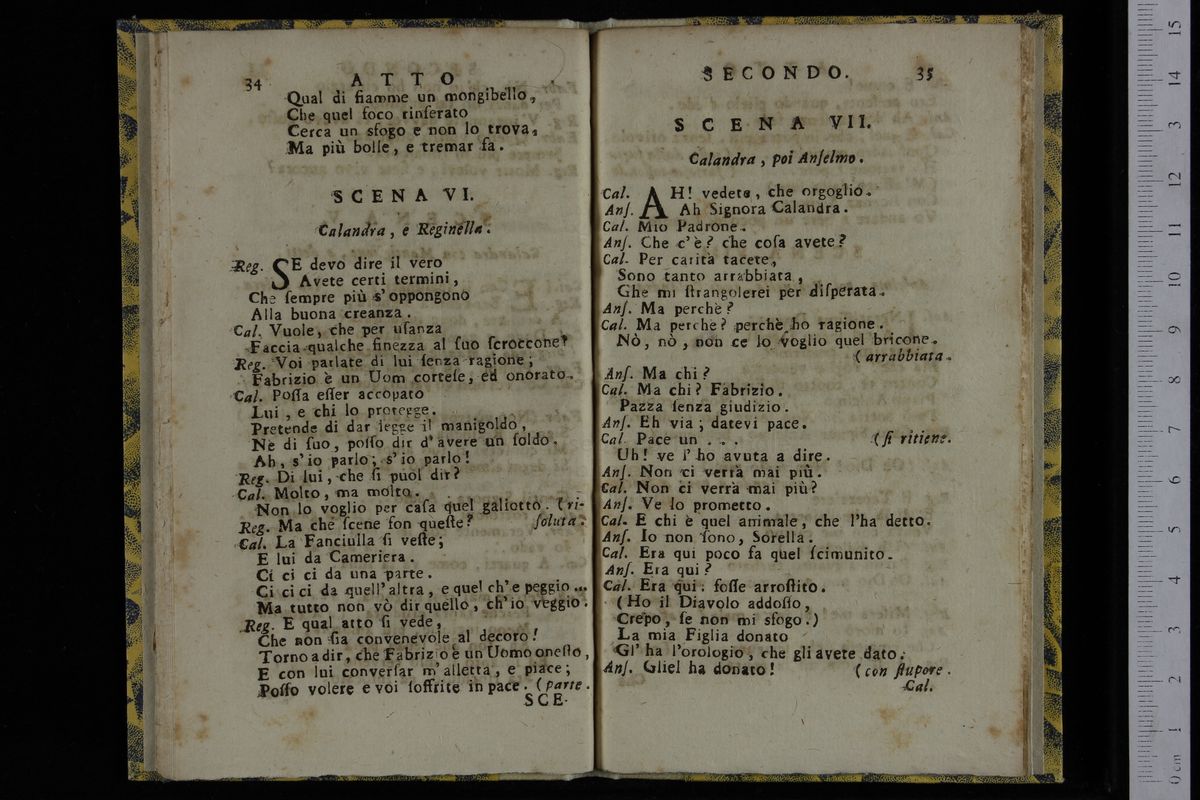 34 ATTO
Qual di fiamme un mongibello,
Che quel foco rinſerato
Cerca un sfogo e non lo trova,
Ma più bolle, e tremar fa.
SCENA VI.
Calandra, e Reginella.
Reg. SE devo dire il vero
Avete certi termini,
Che ſempre più s'oppongono
Alla buona creanza.
Cal. Vuole, che per uſanza
Faccia qualche finezza al ſuo ſcroccone?
Reg. Voi parlate di lui ſenza ragione;
Fabrizio è un Uom corteſe, ed onorato.
Cal. Poſſa eſſer accopato
Lui, e chi lo protegge.
Pretende di dar legge il manigoldo,
Nè di ſuo, poſſo dir d'avere un ſoldo.
Ah, s'io parlo; s'io parlo!
Reg. Di lui, che ſi puol dir?
Cal. Molto, ma molto.
Non lo voglio per caſa quel galiotto. (ri-
Reg. Ma che ſcene ſon queſte? ſoluta.
Cal. La Fanciulla ſi veſte;
E lui da Cameriera.
Ci ci ci da una parte.
Ci ci ci da quell'altra, e quel ch'e peggio ...
Ma tutto non vò dir quello, ch'io veggio.
Reg. E qual atto ſi vede,
Che non ſia convenevole al decoro!
Torno a dir, che Fabrizio è un Uomo oneſto,
E con lui converſar m'alletta, e piace;
Poſſo volere e voi ſoffrite in pace. (parte.
SCE-
SECONDO. 35
SCENA VII.
Calandra, poi Anſelmo.
Cal. AH! vedete, che orgoglio.
Anſ. Ah Signora Calandra.
Cal. Mio Padrone.
Anſ. Che c'è? che coſa avete?
Cal. Per carità tacete,
Sono tanto arrabbiata,
Ghe mi ſtrangolerei per diſperata.
Anſ. Ma perchè?
Cal. Ma perchè? perchè ho ragione.
Nò, nò, non ce lo voglio quel bricone.
(arrabbiata.
Anſ. Ma chi?
Cal. Ma chi? Fabrizio.
Pazza ſenza giudizio.
Anſ. Eh via; datevi pace.
Cal. Pace un . . . (ſi ritiene.
Uh! ve l'ho avuta a dire.
Anſ. Non ci verrà mai più.
Cal. Non ci verrà mai più?
Anſ. Ve lo prometto.
Cal. E chi è quel animale, che l'ha detto.
Anſ. Io non ſono, Sorella.
Cal. Era qui poco fa quel ſcimunito.
Anſ. Era qui?
Cal. Era qui: foſſe arroſtito.
(Ho il Diavolo addoſſo,
Crepo, ſe non mi sfogo.)
La mia Figlia donato
Gl'ha l'orologio, che gli avete dato.
Anſ. Gliel ha donato! (con ſtupore.
Cal.
0 cm 1 2 3 4 5 6 7 8 9 10 11 12 13 14 15